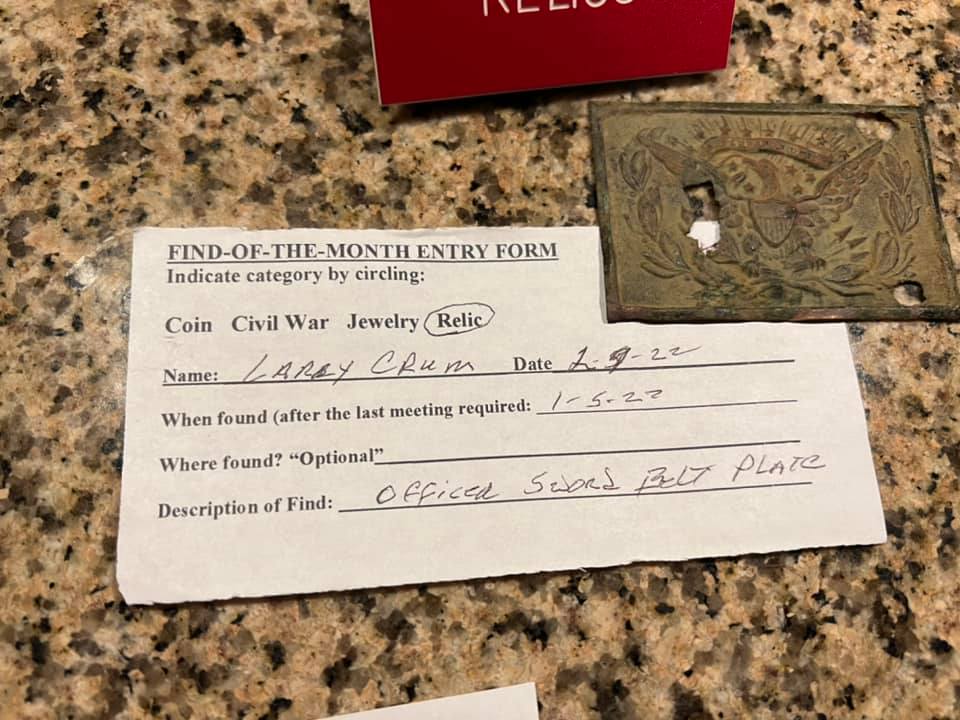 RELICS
FIND-OF-THE-MONTH ENTRY FORM
Indicate category by circling:
Coin Civil War Jewelry Relic
Name: LARRY CRUM Date 2-9-22
When found (after the last meeting required: 1-5-22
Where found? “Optional”
Description of Find: OFFICER SWORD BELT PLATE